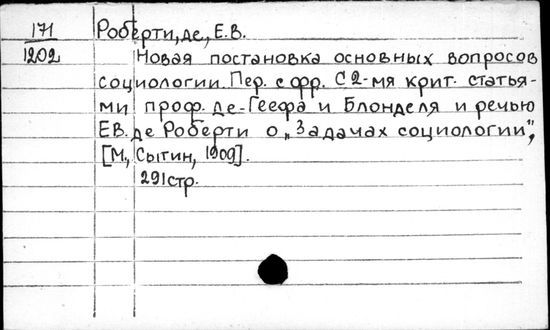 171 Роберти, де, Е.В.
1202 Новая постановка основных вопросов
социологии. Пер. с фр. С 2-мя крит. статья-
ми проф. де-Геефа и Блонделя и речью
Е.В. де Роберти о „Задачах социологии",
[М., Сытин, 1909].
291стр.